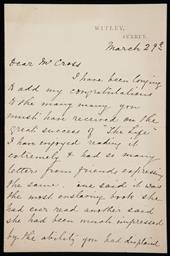 WITLEY,
SURREY.
March 29th
Dear Mr Cross
I have been longing
to add my congratulations
to the many many you
must have received on the
great success of "The Life"
I have enjoyed reading it
extremely & had so many
letters from friends expressing
the same. one said it was
the most enslaving book she
had ever read another said
she had been much impressed
by the ability you had displaied